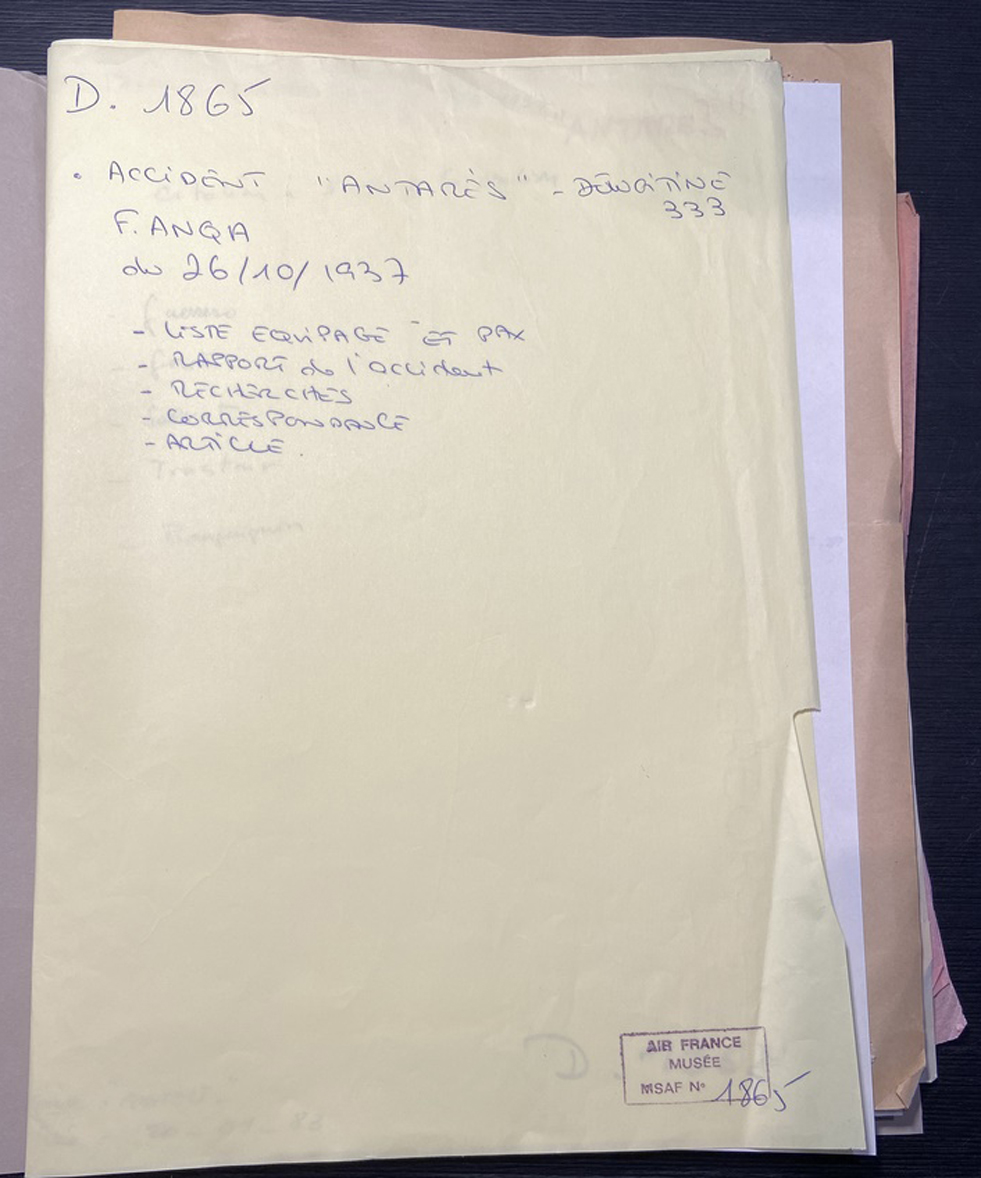 D. 1865
. ACCIDENT "ANTARÈS" - DEWOITINE
333
F. ANQA
du 26/10/1937
- LISTE EQUIPAGE ET PAX
- RAPPORT de l'accident
- RECHERCHES
- CORRESPONDANCE
- ARTICLE.
AIR FRANCE
MUSÉE
MSAF N° 1865